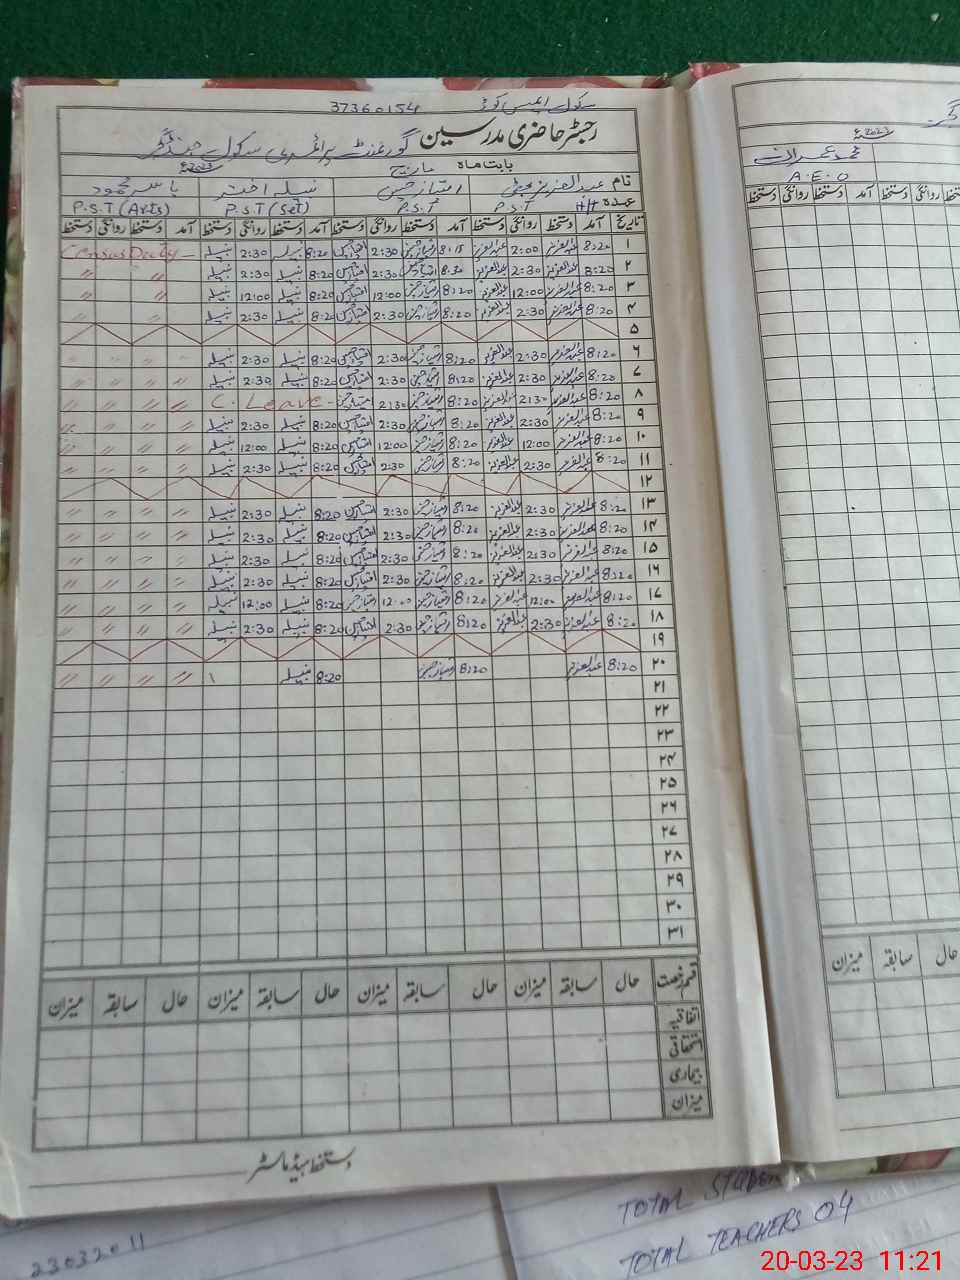 سکول ایمس کوڈ 37360154
رجسٹر حاضری مدرسین گورنمنٹ پرائمری سکول
بابت ماہ مارچ 2023ء
نام عبدالعزیز امتیاز حسین نبیلہ اختر یاسر محمود
عہدہ H/t P.S.T P.S.T P.S.T (Set) P.S.T (Arts)
تاریخ آمد دستخط روانگی دستخط آمد دستخط روانگی دستخط آمد دستخط روانگی دستخط آمد دستخط روانگی دستخط
۱ 8:20 عبدالعزیز 2:00 عبدالعزیز 8:15 امتیاز حسین 2:30 امتیاز حسین 8:20 نبیلہ 2:30 نبیلہ Census Duty –
۲ 8:20 عبدالعزیز 2:30 عبدالعزیز 8:20 امتیاز حسین 2:30 امتیاز حسین 8:20 نبیلہ 2:30 نبیلہ 〃 〃
۳ 8:20 عبدالعزیز 12:00 عبدالعزیز 8:20 امتیاز حسین 12:00 امتیاز حسین 8:20 نبیلہ 12:00 نبیلہ 〃 〃
۴ 8:20 عبدالعزیز 2:30 عبدالعزیز 8:20 امتیاز حسین 2:30 امتیاز حسین 8:20 نبیلہ 2:30 نبیلہ 〃 〃
۵
۶ 8:20 عبدالعزیز 2:30 عبدالعزیز 8:20 امتیاز حسین 2:30 امتیاز حسین 8:20 نبیلہ 2:30 نبیلہ 〃 〃 〃 〃
۷ 8:20 عبدالعزیز 2:30 عبدالعزیز 8:20 امتیاز حسین 2:30 امتیاز حسین 8:20 نبیلہ 2:30 نبیلہ 〃 〃 〃 〃
۸ 8:20 عبدالعزیز 2:30 عبدالعزیز 8:20 امتیاز حسین 2:30 امتیاز حسین C. Leave – 〃 〃 〃 〃
۹ 8:20 عبدالعزیز 2:30 عبدالعزیز 8:20 امتیاز حسین 2:30 امتیاز حسین 8:20 نبیلہ 2:30 نبیلہ 〃 〃 〃 〃
۱۰ 8:20 عبدالعزیز 12:00 عبدالعزیز 8:20 امتیاز حسین 12:00 امتیاز حسین 8:20 نبیلہ 12:00 نبیلہ 〃 〃 〃 〃
۱۱ 8:20 عبدالعزیز 2:30 عبدالعزیز 8:20 امتیاز حسین 2:30 امتیاز حسین 8:20 نبیلہ 2:30 نبیلہ 〃 〃 〃 〃
۱۲
۱۳ 8:20 عبدالعزیز 2:30 عبدالعزیز 8:20 امتیاز حسین 2:30 امتیاز حسین 8:20 نبیلہ 2:30 نبیلہ 〃 〃 〃 〃
۱۴ 8:20 عبدالعزیز 2:30 عبدالعزیز 8:20 امتیاز حسین 2:30 امتیاز حسین 8:20 نبیلہ 2:30 نبیلہ 〃 〃 〃 〃
۱۵ 8:20 عبدالعزیز 2:30 عبدالعزیز 8:20 امتیاز حسین 2:30 امتیاز حسین 8:20 نبیلہ 2:30 نبیلہ 〃 〃 〃 〃
۱۶ 8:20 عبدالعزیز 2:30 عبدالعزیز 8:20 امتیاز حسین 2:30 امتیاز حسین 8:20 نبیلہ 2:30 نبیلہ 〃 〃 〃 〃
۱۷ 8:20 عبدالعزیز 12:00 عبدالعزیز 8:20 امتیاز حسین 12:00 امتیاز حسین 8:20 نبیلہ 12:00 نبیلہ 〃 〃 〃 〃
۱۸ 8:20 عبدالعزیز 2:30 عبدالعزیز 8:20 امتیاز حسین 2:30 امتیاز حسین 8:20 نبیلہ 2:30 نبیلہ 〃 〃 〃 〃
۱۹
۲۰ 8:20 عبدالعزیز 8:20 امتیاز حسین 8:20 نبیلہ 〃 〃 〃 〃
۲۱
۲۲
۲۳
۲۴
۲۵
۲۶
۲۷
۲۸
۲۹
۳۰
۳۱
قسم رخصت حال سابقہ میزان حال سابقہ میزان حال سابقہ میزان حال سابقہ میزان
اتفاقیہ
استحقاقی
بیماری
میزان
دستخط ہیڈ ماسٹر
2023ء
محمد عمران
A.E.O
آمد دستخط روانگی دستخط آمد دستخط
حال سابقہ میزان
TOTAL Studen
TOTAL TEACHERS 04
23032011
20-03-23 11:21